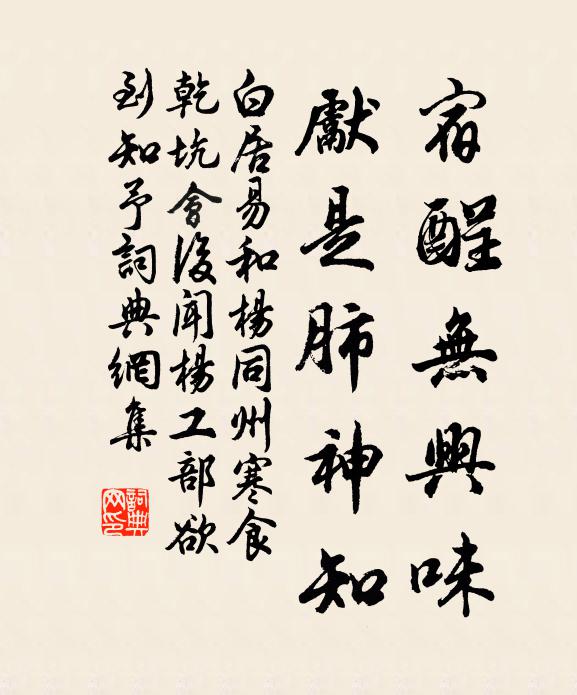 宿酲無興味
獻是肺神知
白居易和楊同州寒食
乾坑會後聞楊工部欲
到知予詞典網集
詞典
网印